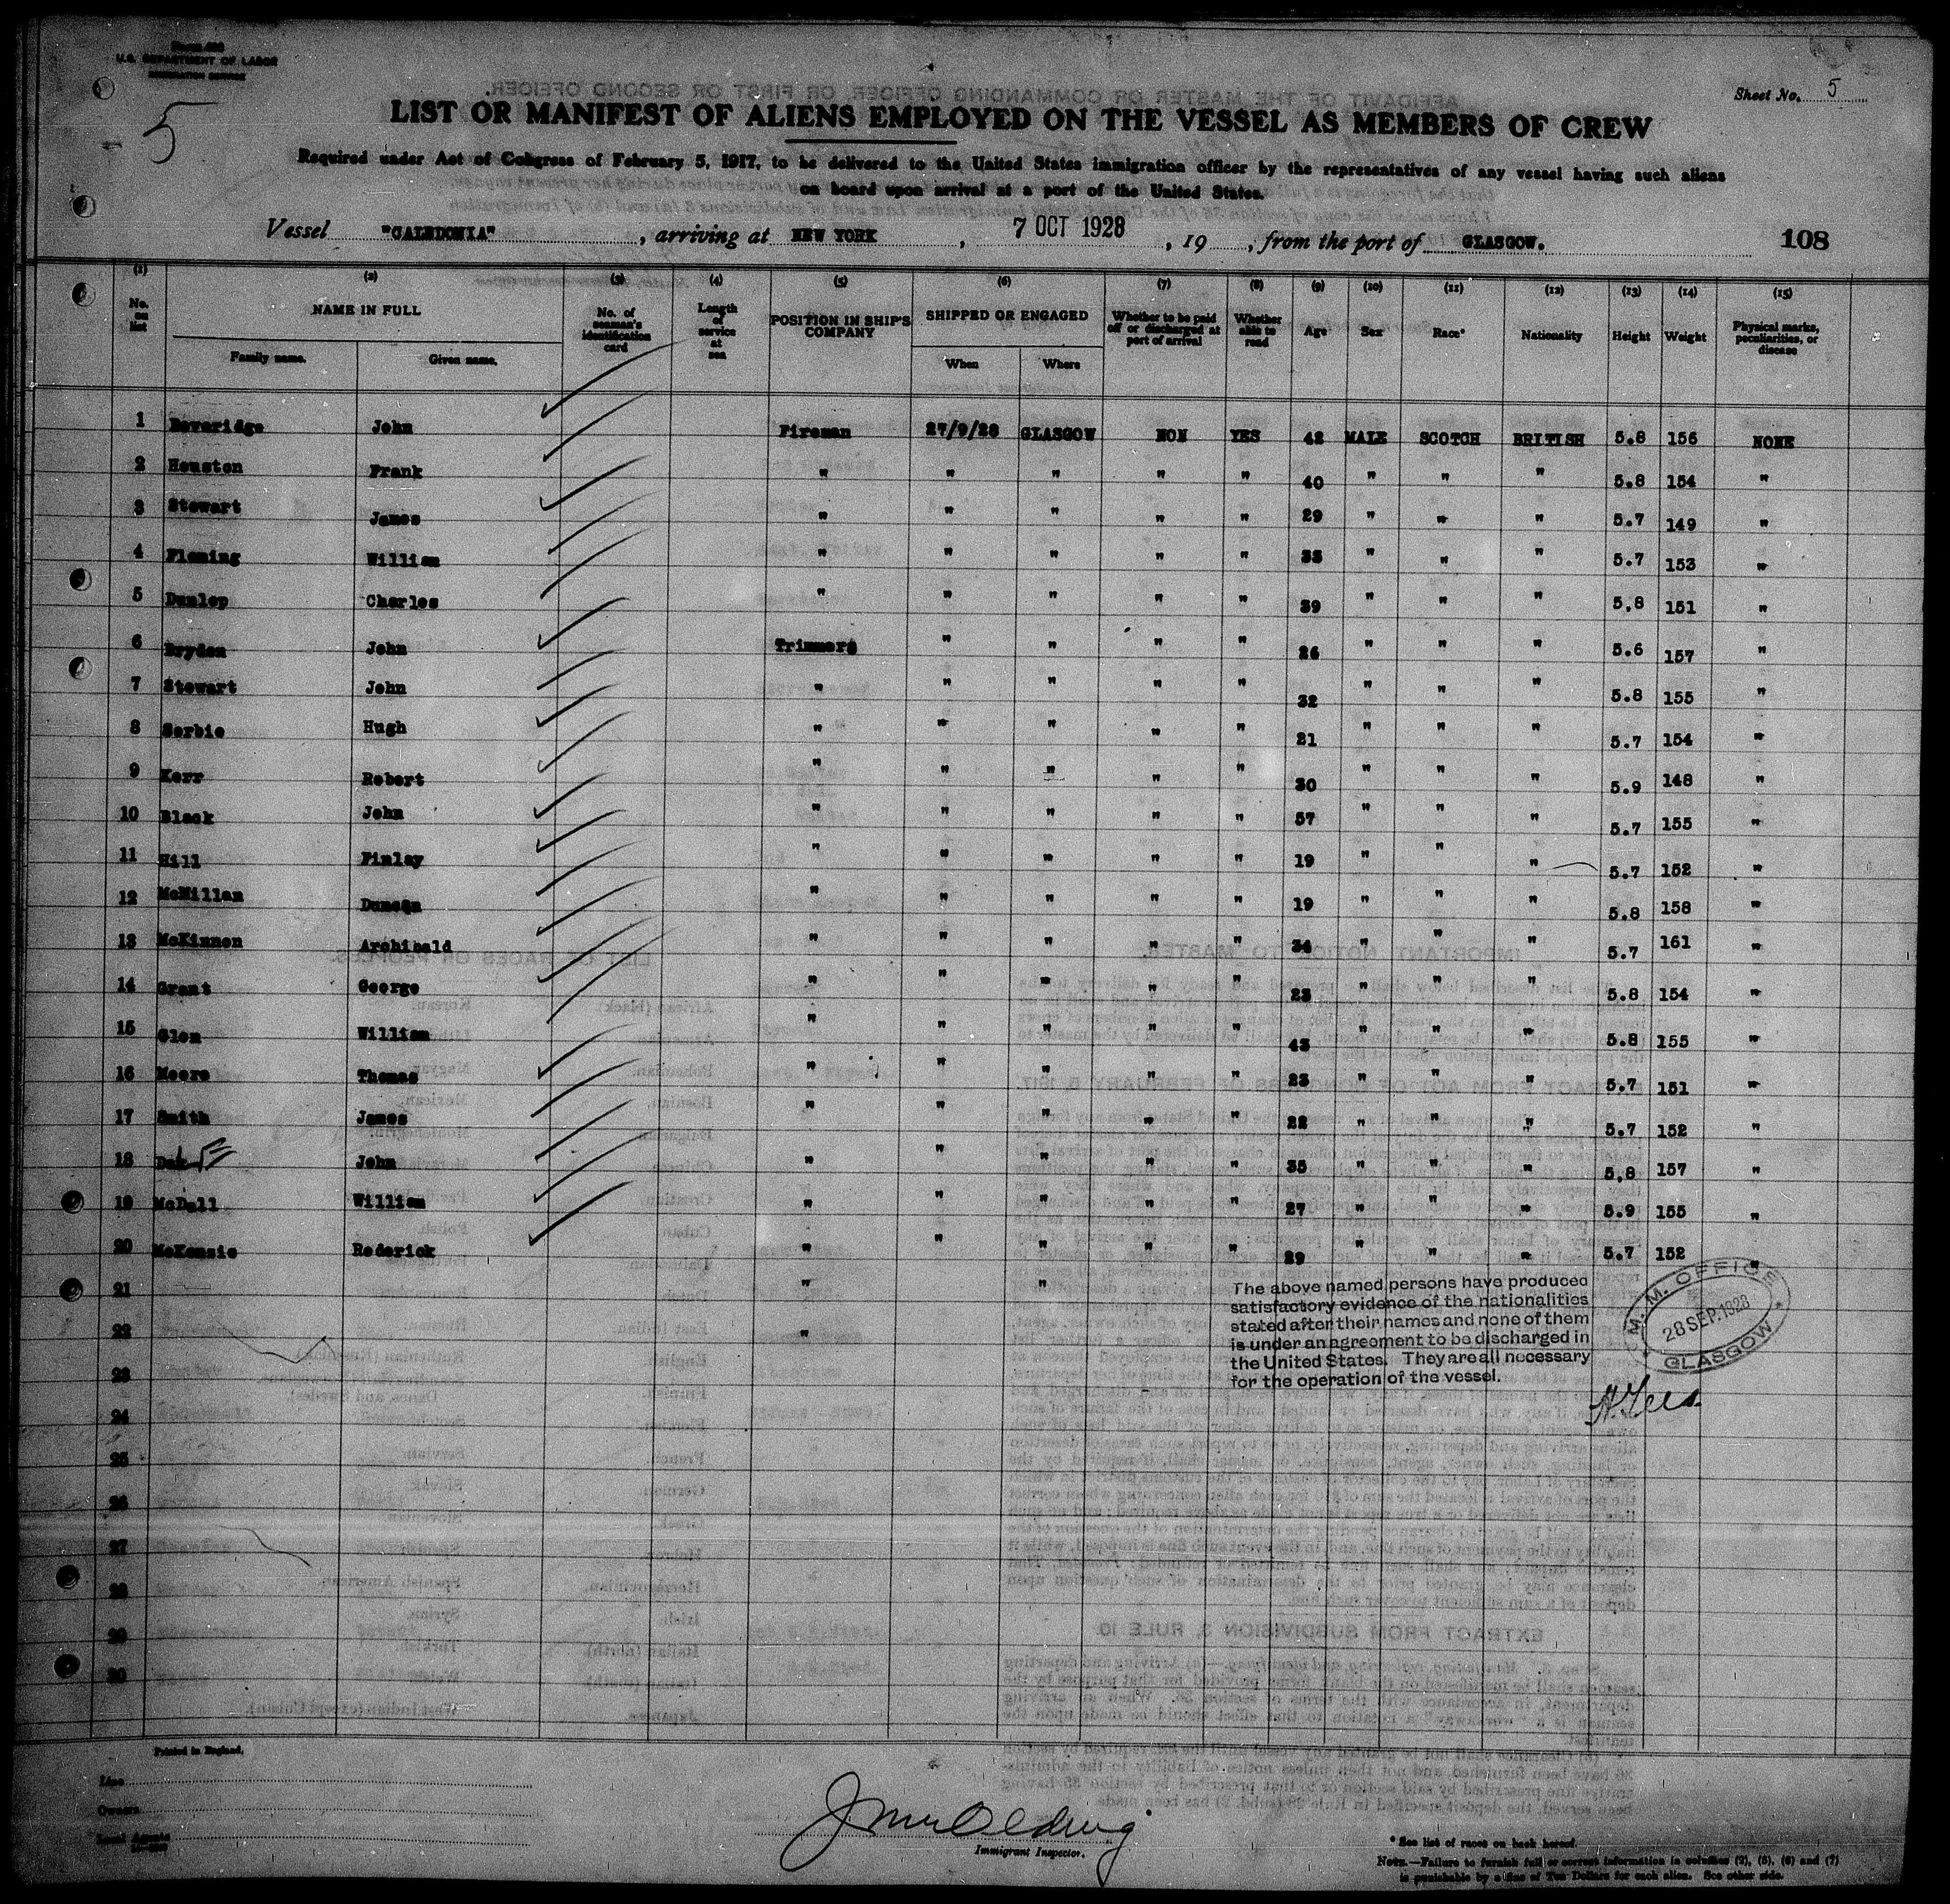 U.S. DEPARTMENT OF LABOR
IMMIGRATION SERVICE
5
Sheet No. 5
LIST OR MANIFEST OF ALIENS EMPLOYED ON THE VESSEL AS MEMBERS OF CREW
Required under Act of Congress of February 5, 1917, to be delivered to the United States immigration officer by the representatives of any vessel having such aliens
on board upon arrival at a port of the United States.
Vessel "CALEDONIA", arriving at NEW YORK, 7 OCT 1928, 19, from the port of GLASGOW. 108
(1) (2) (3) (4) (5) (6) (7) (8) (9) (10) (11) (12) (13) (14) (15)
No. on list NAME IN FULL Family name. Given name. No. of seaman's identification card Length of service at sea POSITION IN SHIP'S COMPANY SHIPPED OR ENGAGED When Where Whether to be paid off or discharged at port of arrival Whether able to read Age Sex Race* Nationality Height Weight Physical marks, peculiarities, or disease
1 Beveridge John Fireman 27/9/28 GLASGOW NON YES 42 MALE SCOTCH BRITISH 5.8 156 NONE
2 Houston Frank " " " " " 40 " " " 5.8 154 "
3 Stewart James " " " " " 29 " " " 5.7 149 "
4 Fleming William " " " " " 33 " " " 5.7 153 "
5 Dunlop Charles " " " " " 39 " " " 5.8 151 "
6 Bryden John Trimmers " " " " 26 " " " 5.6 157 "
7 Stewart John " " " " " 32 " " " 5.8 155 "
8 Serbie Hugh " " " " " 21 " " " 5.7 154 "
9 Kerr Robert " " " " " 30 " " " 5.9 148 "
10 Black John " " " " " 57 " " " 5.7 155 "
11 Hill Finlay " " " " " 19 " " " 5.7 152 "
12 McMillan Duncan " " " " " 19 " " " 5.8 158 "
13 McKinnon Archibald " " " " " 34 " " " 5.7 161 "
14 Grant George " " " " " 23 " " " 5.8 154 "
15 Glen William " " " " " 43 " " " 5.8 155 "
16 Moore Thomas " " " " " 23 " " " 5.7 151 "
17 Smith James " " " " " 22 " " " 5.7 152 "
18 John " " " " " 35 " " " 5.8 157 "
19 McDall William " " " " " 27 " " " 5.9 155 "
20 McKensie Roderick " " " " " 29 " " " 5.7 152 "
21 " "
22 "
23
24
25
26
27
28
29
30
The above named persons have produced
satisfactory evidence of the nationalities
stated after their names and none of them
is under an agreement to be discharged in
the United States. They are all necessary
for the operation of the vessel.
M. M. OFFICE
28 SEP. 1928
GLASGOW
Printed in England.
Line
Owners
Local Agents
Immigrant Inspector.
* See list of races on back hereof.
NOTE.—Failure to furnish full or correct information in columns (2), (5), (6) and (7)
is punishable by a fine of Ten Dollars for each alien. See other side.